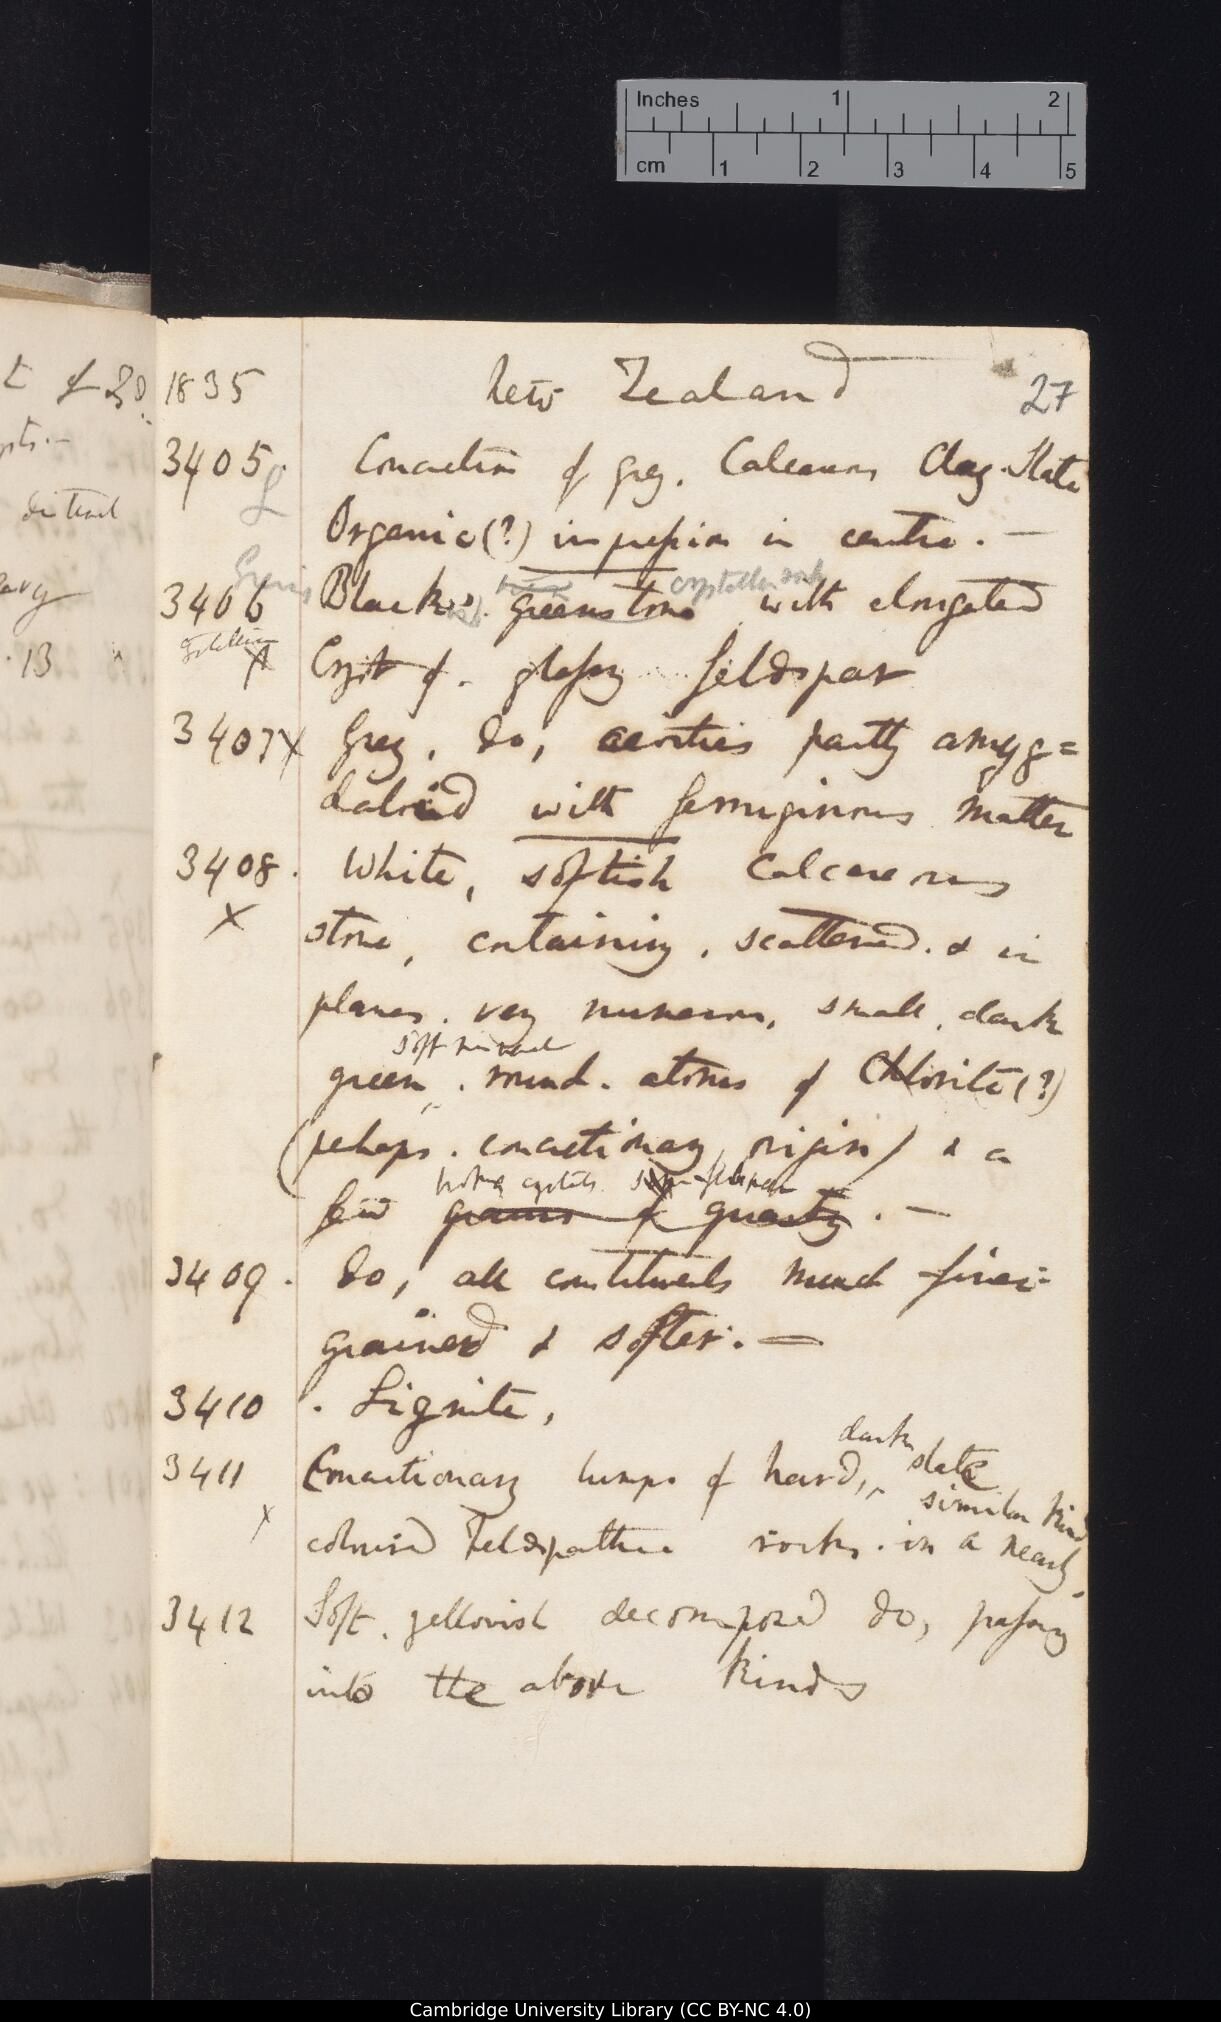 Inches 1 2
cm 1 2 3 4 5
1835 New Zealand 27
3405. Concretion of grey. Calcareous Clay-Slate
L
Organic (?) impression in centre. —
3406 Black greenstone crystalline rock with elongated
Cryst of. glassy feldspar
3407 X Grey, do, cavities partly amyg=
daloid with ferruginous matter
3408. White, softish Calcareous
X
stone, containing, scattered. & in
planes. very numerous, small, dark
soft mineral
green. round. atoms of Chlorite (?)
(perhaps. concretionary origin) & a
few grains of quartz. —
3409. do, all constituents much finer-
grained & softer. —
3410 . Lignite,
dark
3411 Concretionary lumps of hard, slate
X
similar kind
coloured Feldspathic rocks. in a nearly
3412 Soft. yellowish decomposed do, passing
into the above kinds
t of
distinct
13
Cambridge University Library (CC BY-NC 4.0)